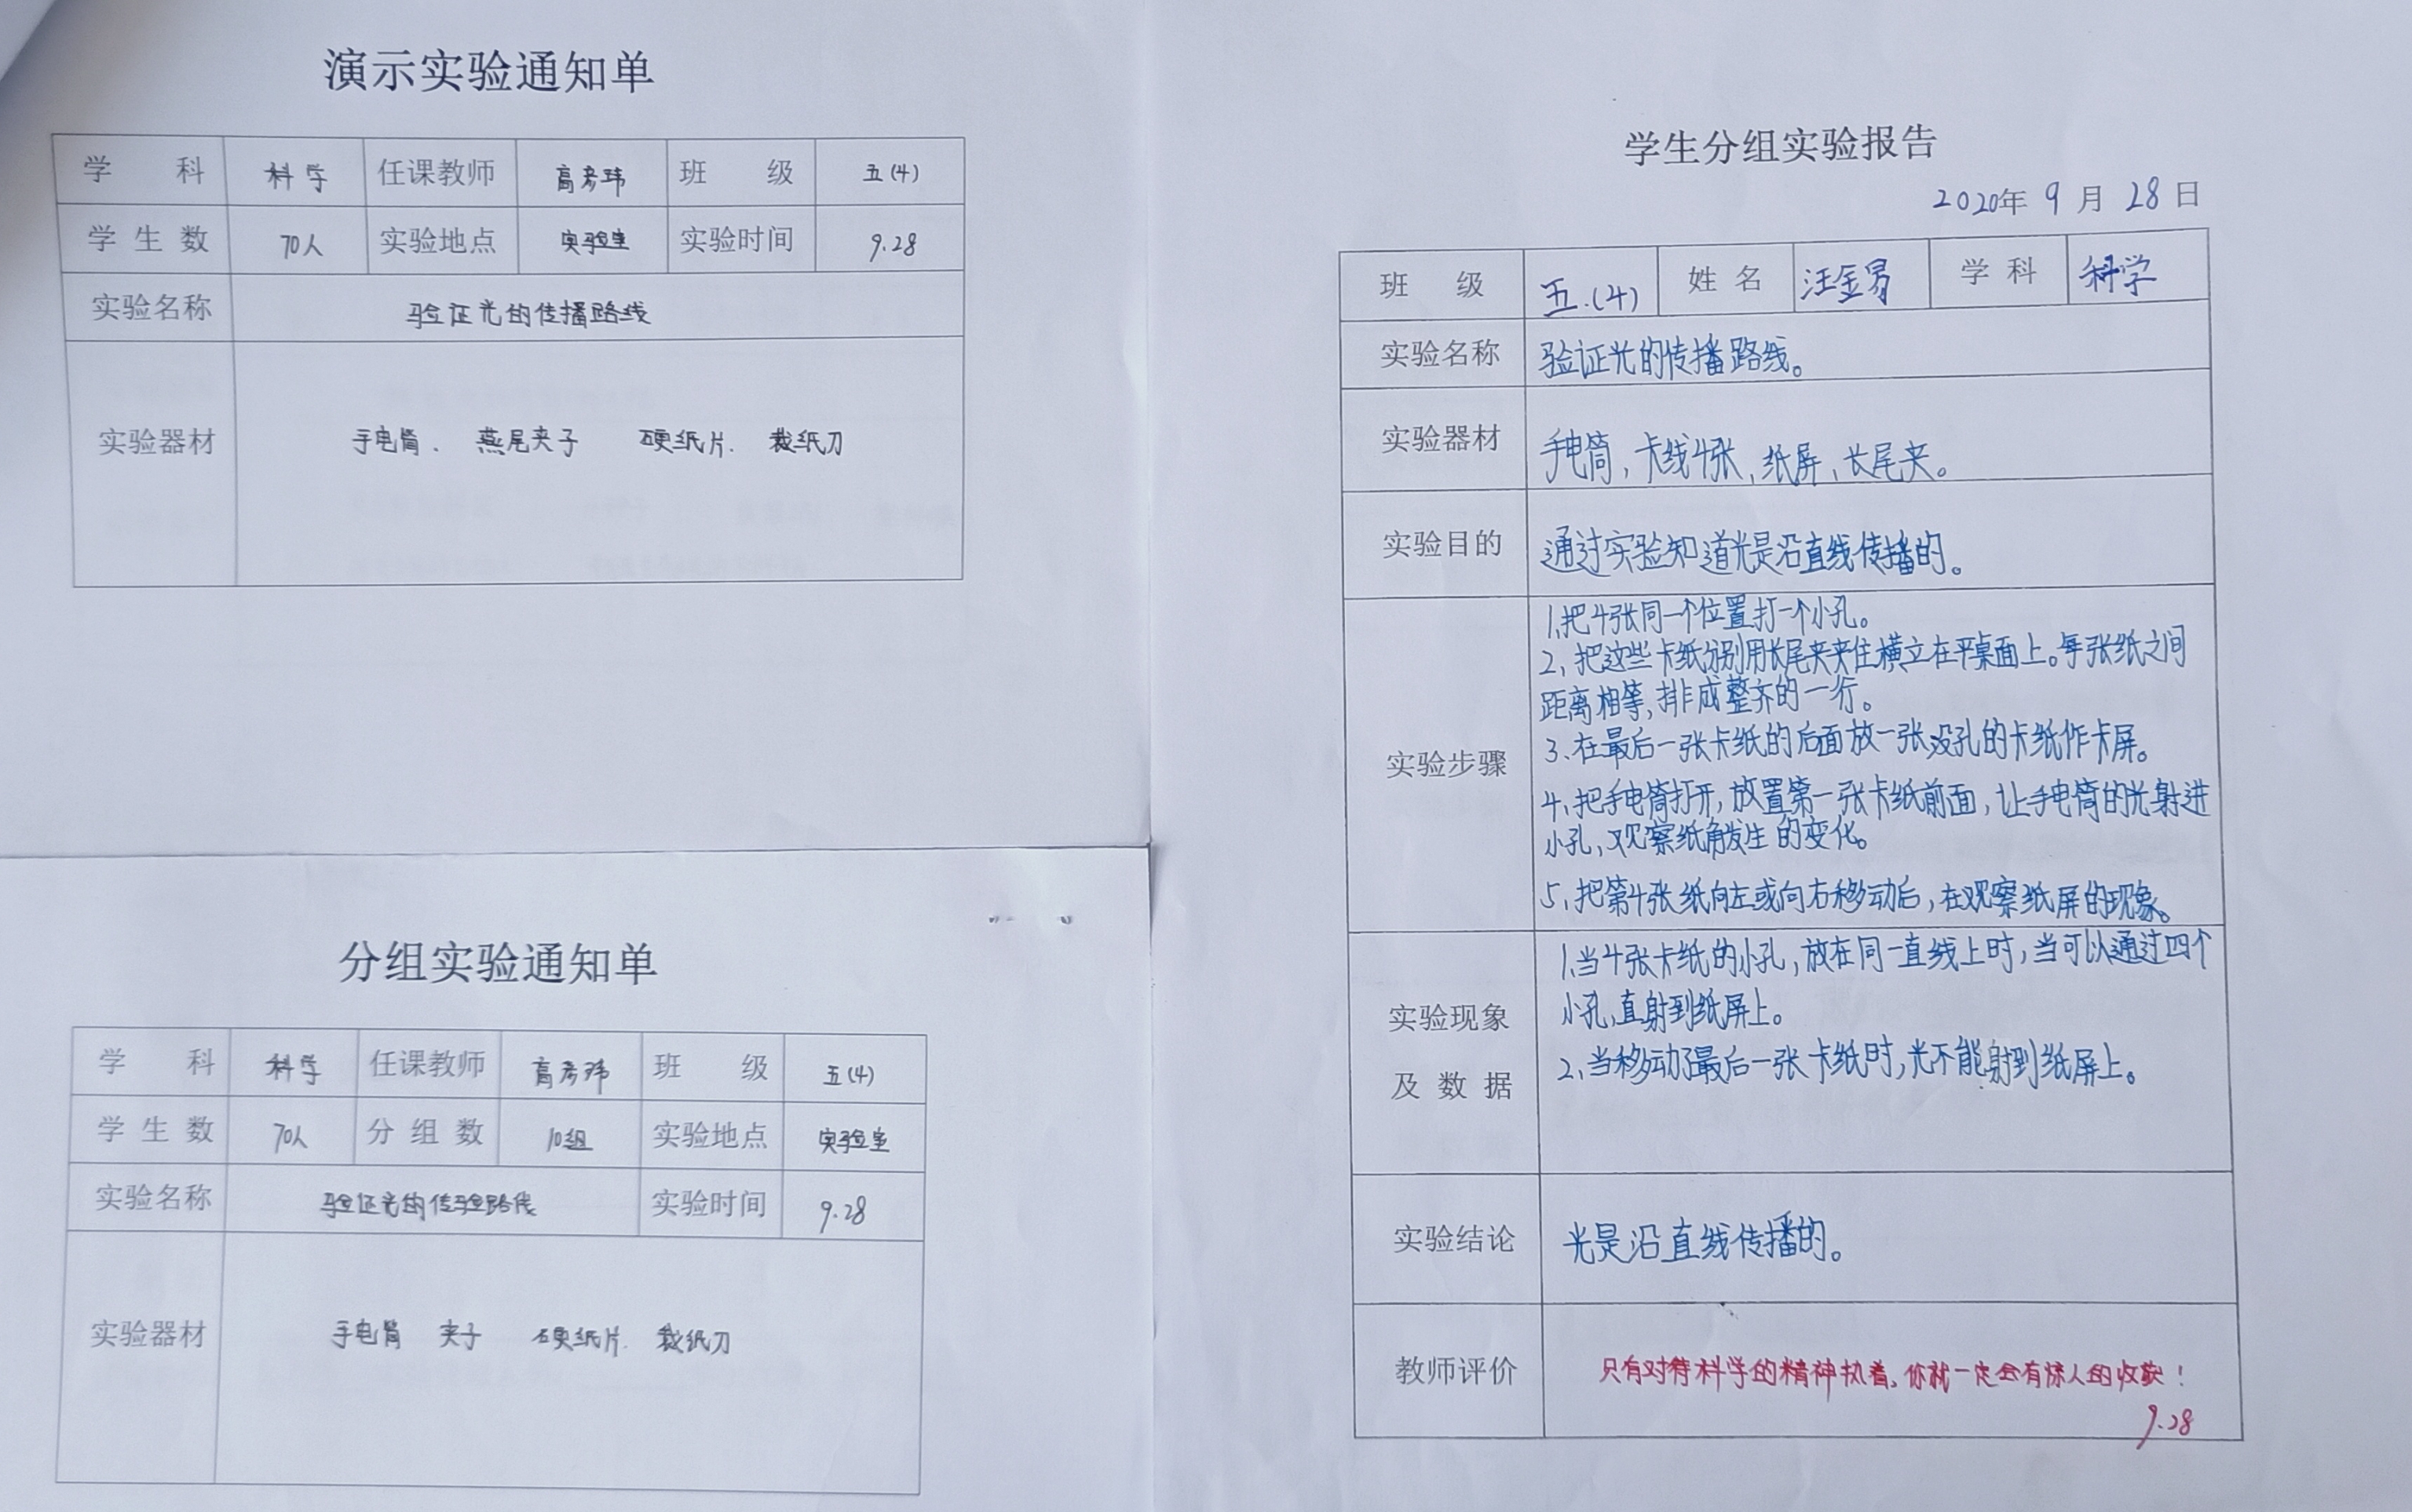 演示实验通知单
学 科 科学 任课教师 高彦玮 班 级 五(4)
学 生 数 70人 实验地点 实验室 实验时间 9.28
实验名称 验证光的传播路线
实验器材 手电筒、 燕尾夹子 硬纸片. 裁纸刀
分组实验通知单
学 科 科学 任课教师 高彦玮 班 级 五(4)
学 生 数 70人 分 组 数 10组 实验地点 实验室
实验名称 验证光的传验路线 实验时间 9.28
实验器材 手电筒 夹子 硬纸片. 裁纸刀
学生分组实验报告
2020年 9 月 28 日
班 级 五.(4) 姓 名 汪金易 学 科 科学
实验名称 验证光的传播路线。
实验器材 手电筒,卡线4张,纸屏,长尾夹。
实验目的 通过实验知道光是沿直线传播的。
实验步骤
1.把4张同一个位置打一个小孔。
2、把这些卡纸分别用长尾夹夹住横立在平桌面上。每张纸之间
距离相等,排成整齐的一行。
3.在最后一张卡纸的后面放一张没孔的卡纸作卡屏。
4、把手电筒打开,放置第一张卡纸前面,让手电筒的光射进
小孔,观察纸发生的变化。
5、把第4张纸向左或向右移动后,在观察纸屏的现象。
实验现象
及 数 据
1.当4张卡纸的小孔,放在同一直线上时,当可以通过四个
小孔,直射到纸屏上。
2、当移动了最后一张卡纸时,光不能射到纸屏上。
实验结论 光是沿直线传播的。
教师评价 只有对待科学的精神执着,你就一定会有惊人的收获!
9.28